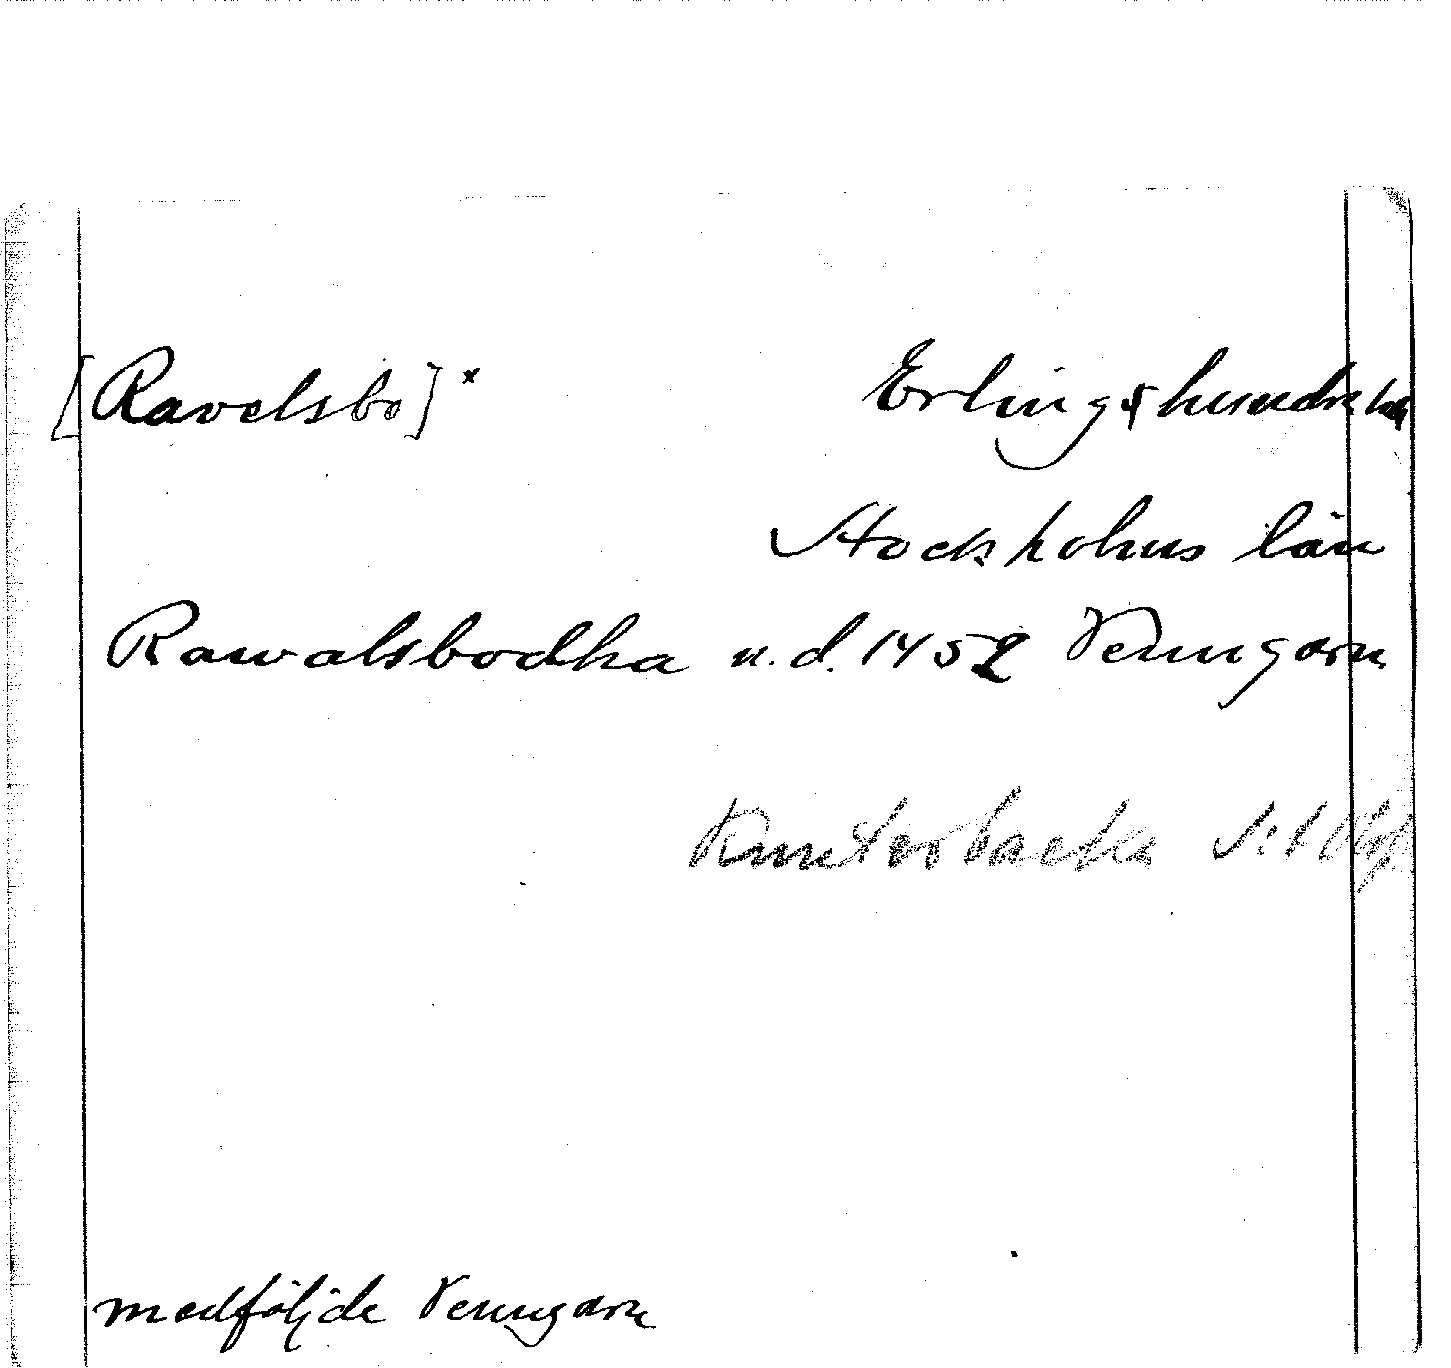 [Ravelsbo]ˣ Erlingshundra
Stockholms län
Rawalsbodha u.d. 1452 Venngarn
S:t Olof
medföljde Venngarn